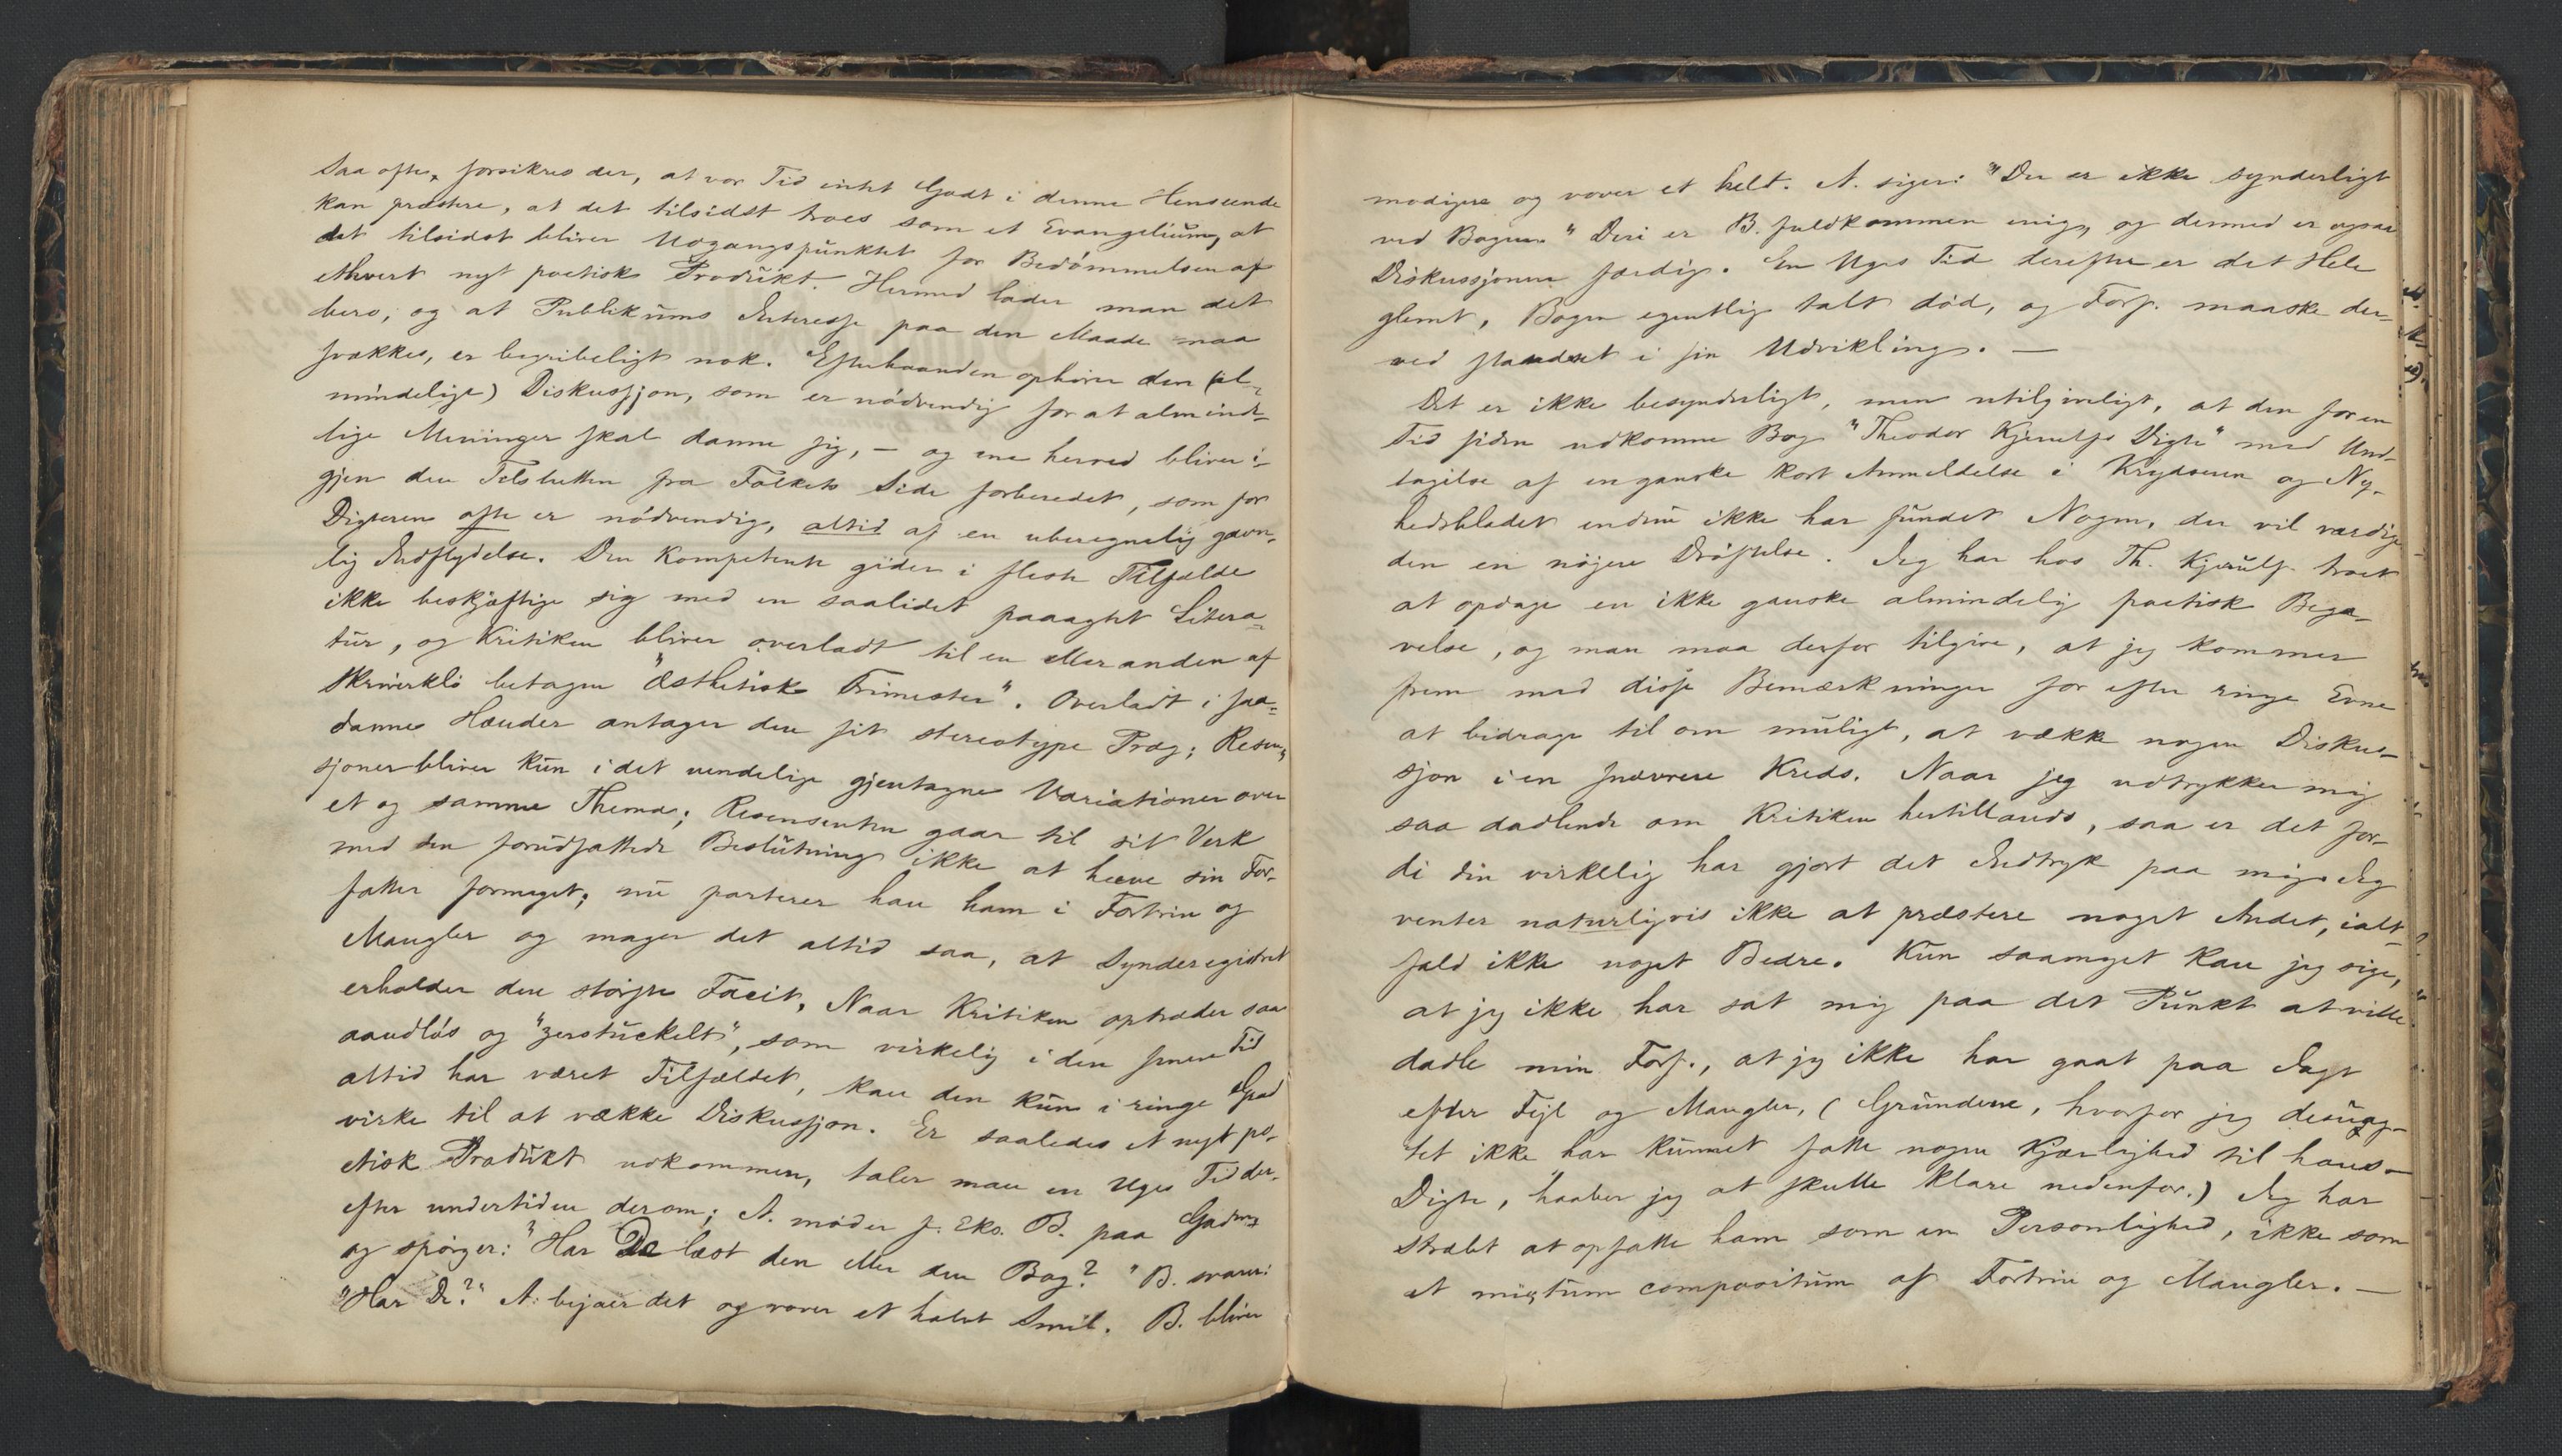 Saa ofte forsikres der, at vor Tid intet Godt i denne Henseende
kan præstere, at det tilsidst troes som et Evangelium, at
det tilsidst bliver Udgangspunktet for Bedömmelsen af
ethvert nyt poetisk Produkt. Hermed lader man det
bero; og at Publikums Interesse paa den Maade maa
svækkes, er begribeligt nok. Efterhaanden ophörer den (al-
mindelige) Diskussjon, som er nödvendig for at alminde-
lige Meninger skal danne sig, — og ene herved bliver i-
gjen den Tilslutten fra Folkets Side forberedet, som for
Digteren ofte er nödvendig, altid af en uberegnelig gavn-
lig Indflydelse. Den Kompetente gider i fleste Tilfælde
ikke beskjæftige sig med en saalidet paaagtet Litera-
tur, og Kritiken bliver overladt til en eller anden af
Skrivekló betagen "æsthetisk Trimester". Overladt i saa-
danne Hænder antager den sit stereotype Præg; Resen-
sjoner bliver kun i det uendelige gjentagne Variationer over
et og samme Thema; Resensenten gaar til sit Verk
med den forudfattede Beslutning ikke at hæve sin For-
fatter formeget; nu parterer han ham i Fortrin og
Mangler og mager det altid saa, at Synderegistret
erholder den störste Facit. Naar Kritiken optræder saa
aandlös og "zerstückelt", som virkelig i den senere Tid
altid har været Tilfældet, kan den kun i ringe Grad
virke til at vække Diskussjon. Er saaledes et nyt po-
etisk Produkt udkommen, taler man en Uges Tid der-
efter undertiden derom; A. möder f. Eks. B. paa Gaden
og spörger: "Har De læst den eller den Bog?" B. svarer:
"Har De?" A. bejaer det og vover et halvt Smil. B. bliver
modigere og vover et helt. A. siger: "Der er ikke synderligt
ved Bogen." Deri er B. fuldkommen enig, og dermed er ogsaa
Diskussjonen færdig. En Uges Tid derefter er det Hele
glemt, Bogen egentlig talt död, og Forf. maaske der-
ved standset i sin Udvikling. —
Det er ikke besynderligt, men utilgiveligt, at den for en
Tid siden udkomne Bog "Theodor Kjerulfs Digte" med Und-
tagelse af en ganske kort Anmeldelse i Krydseren og Ny-
hedsbladet endnu ikke har fundet Nogen, der vil værdige
den en nöjere Dröftelse. Jeg har hos Th. Kjerulf troet
at opdage en ikke ganske almindelig poetisk Bega-
velse, og man maa derfor tilgive, at jeg kommer
frem med disse Bemærkninger for efter ringe Evne
at bidrage til om muligt, at vække nogen Diskus-
sjon i en snævrere Kreds. Naar jeg udtrykker mig
saa dadlende om Kritiken hertillands, saa er det for-
di den virkelig har gjort det Indtryk paa mig. Jeg
venter naturligvis ikke at præstere noget Andet, ialt-
fald ikke noget Bedre. Kun saameget kan jeg sige,
at jeg ikke har sat mig paa det Punkt at ville
dadle min Forf., at jeg ikke har gaat paa Jagt
efter Fejl og Mangler, (Grundene, hvorfor jeg desuag-
tet ikke har kunnet fatte nogen Kjærlighed til hans
Digte, haaber jeg at skulle klare nedenfor.) Jeg har
stræbt at opfatte ham som en Personlighed, ikke som
et mixtum compositum af Fortrin og Mangler. —